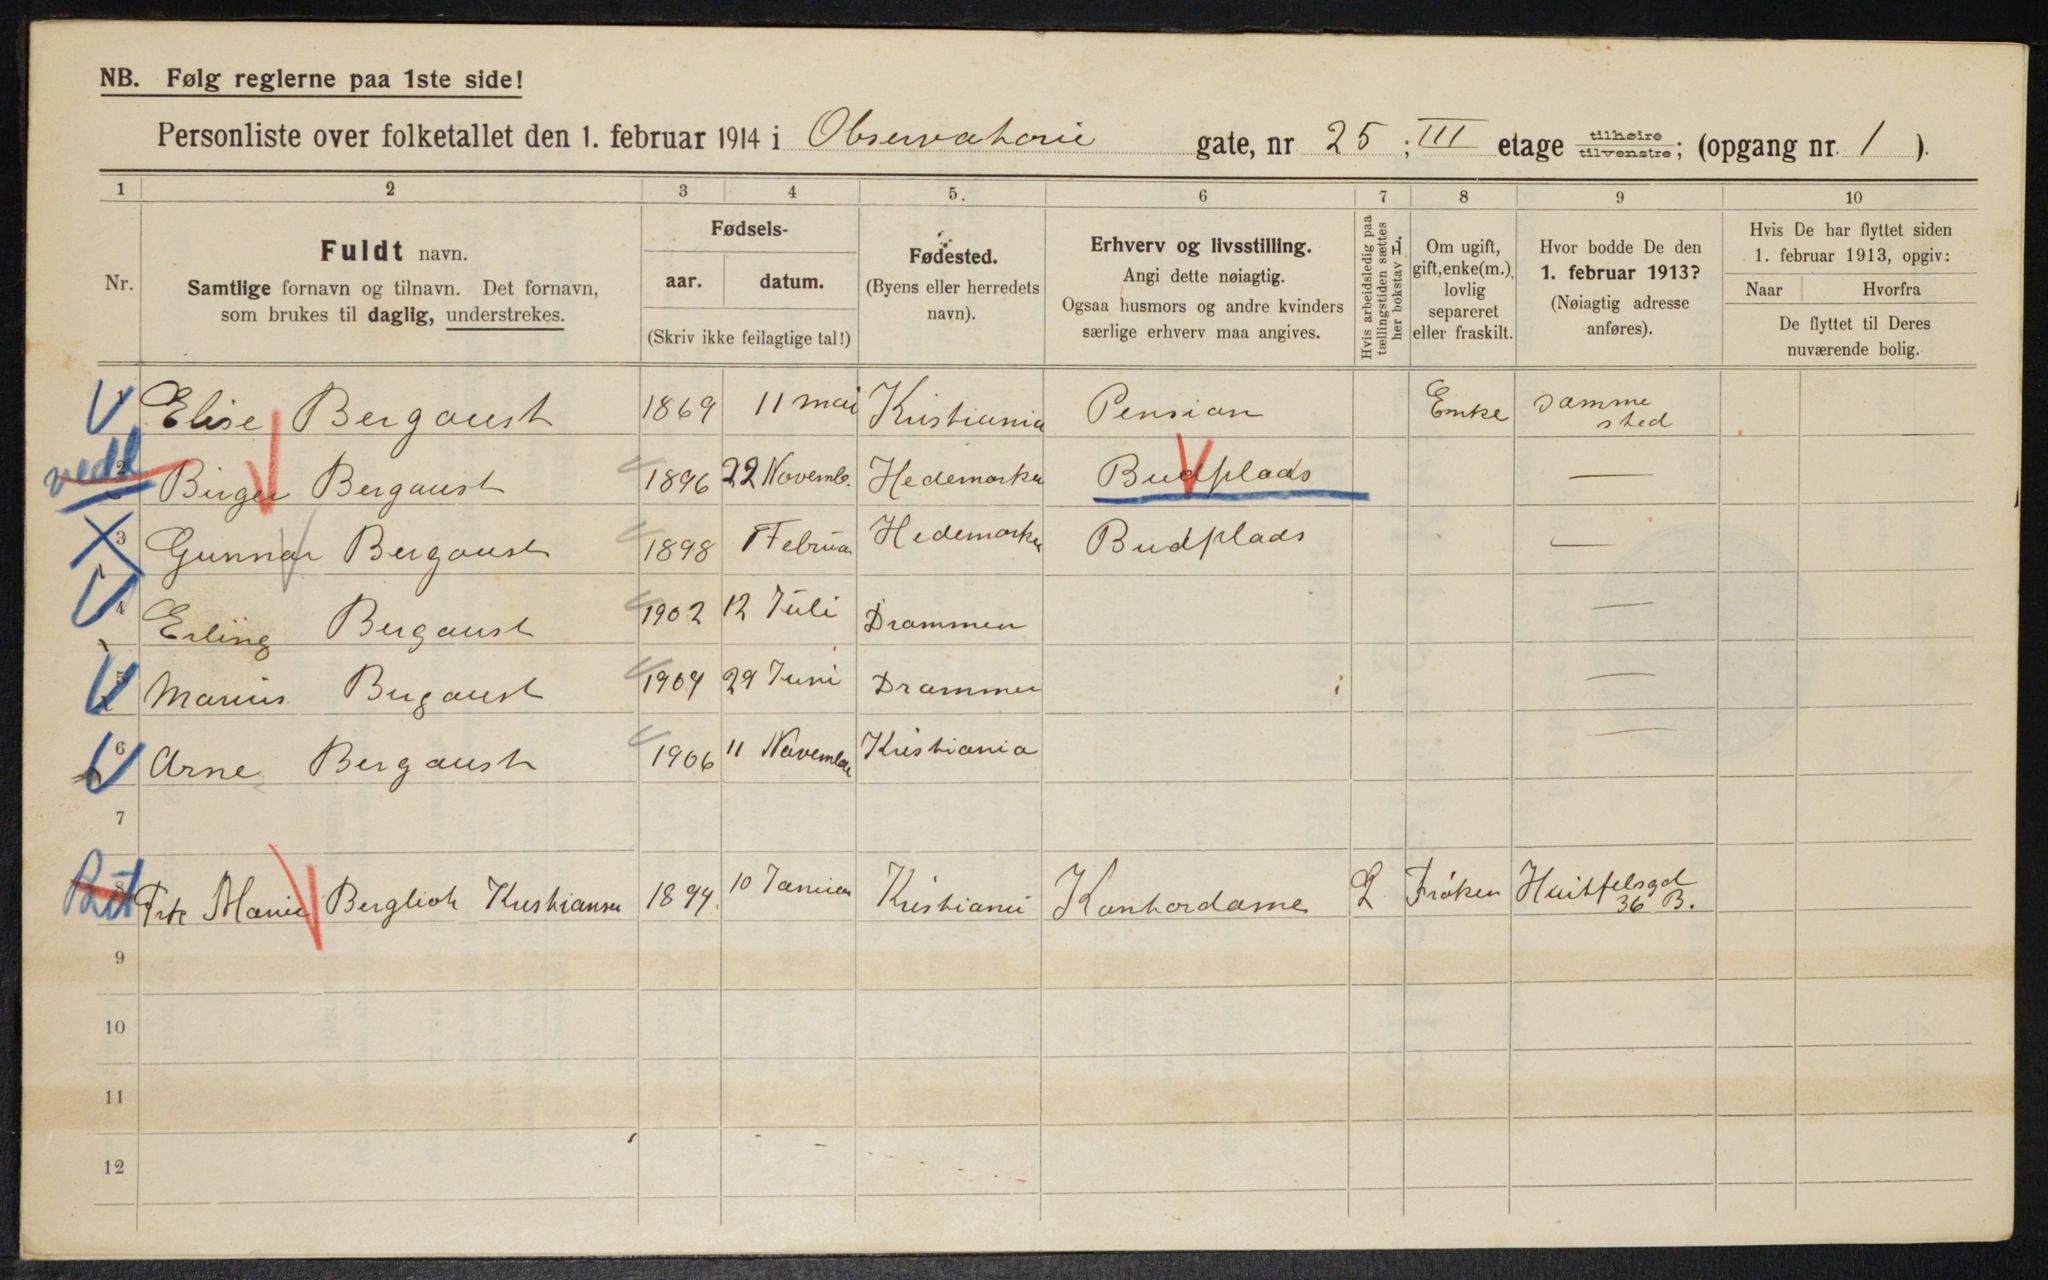 NB. Følg reglerne paa 1ste side!
Personliste over folketallet den 1. februar 1914 i Observatorie gate, nr 25 ; III etage tilhøire / tilvenstre ; (opgang nr. 1 ).
1 2 3 4 5. 6 7 8 9 10
Nr.
Fuldt navn.
Samtlige fornavn og tilnavn. Det fornavn,
som brukes til daglig, understrekes.
Fødsels-
aar. datum.
(Skriv ikke feilagtige tal!)
Fødested.
(Byens eller herredets
navn).
Erhverv og livsstilling.
Angi dette nøiagtig.
Ogsaa husmors og andre kvinders
særlige erhverv maa angives.
Hvis arbeidsledig paa
tællingstiden sættes
her bokstav L.
Om ugift,
gift, enke(m.),
lovlig
separeret
eller fraskilt.
Hvor bodde De den
1. februar 1913?
(Nøiagtig adresse
anføres).
Hvis De har flyttet siden
1. februar 1913, opgiv:
Naar Hvorfra
De flyttet til Deres
nuværende bolig.
1 Elise Bergaust 1869 11 mai Kristiania Pension Enke samme sted
vedl
2 Birger Bergaust 1896 22 Novemb. Hedemarken Budplads —
3 Gunnar Bergaust 1898 Februar Hedemarken Budplads —
4 Erling Bergaust 1902 12 Juli Drammen —
5 Marius Bergaust 1904 29 Juni Drammen —
6 Arne Bergaust 1906 11 November Kristiania —
7
8 Frk Marie Bergliot Kristiansen 1894 10 Januar Kristiania Kontordame L Frøken Huitfelsgd 36 B.
9
10
11
12